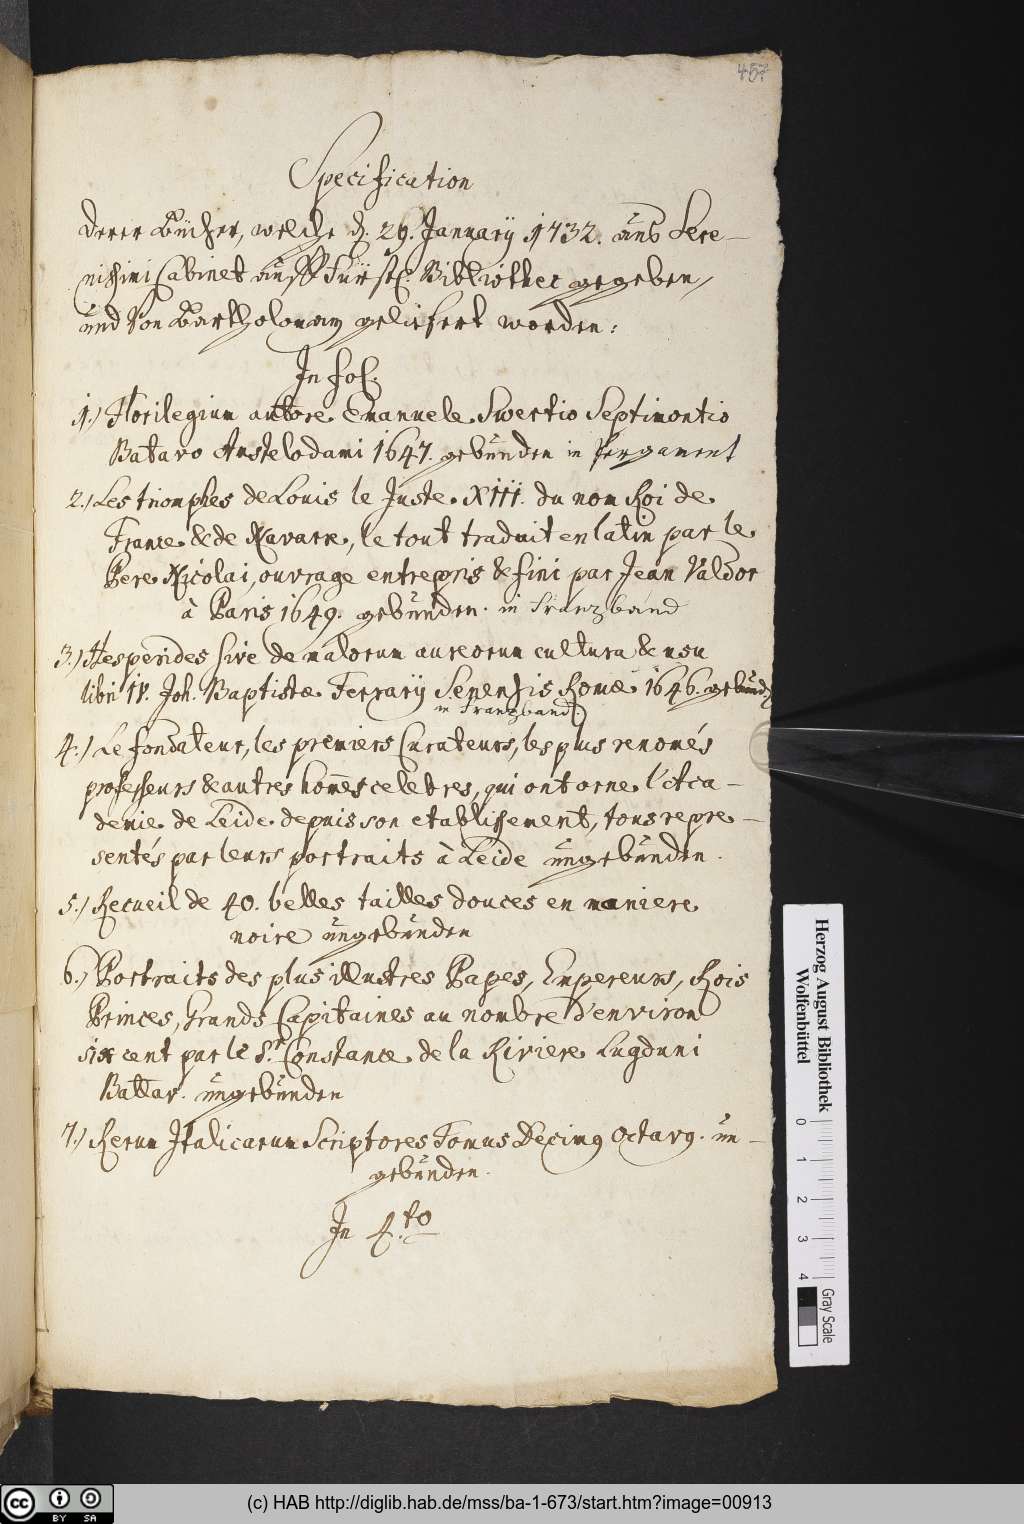 457
Specification
derer Bücher, welche d. 29. Januarÿ 1732. auß Sere-
nissimi Cabinet auff Fürstl. Bibliothec gegeben,
und Von Bartholomæy geliefert worden:
In fol.
1.) Florilegium autore Emanuele Swertio Septimontio
Batavo Amstelodami 1647. gebunden in Pergament
2.) Les triomphes de Louis le Juste XIII. du nom Roi de
France & de Navarre, le tout traduit en latin par le
Pere Nicolai, ouvrage entrepris & fini par Jean Valdor
à Paris 1649. gebunden. in Franzband
3.) Hesperides sive de malorum aureorum cultura & usu
libri IV. Joh. Baptistæ Ferrarÿ Senensis Romæ 1646. gebund.
in Franzband.
4.) Le fondateur, les premiers Curateurs, les plus renomés
professeurs & autres hom̄es celebres, qui ont orne l'Aca-
demie de Leide depuis son etablissement, tous repre-
sentés par leurs portraits à Leide ungebunden.
5.) Recueil de 40. belles tailles douces en maniere
noire ungebunden
6.) Portraits des plus illustres Papes, Empereurs, Rois
Princes, Grands Capitaines au nombre d'environ
six cent par le Sr. Constance de la Riviere Lugduni
Battav. ungebunden
7.) Rerum Italicarum Scriptores Tomus Decimq Octavq. un-
gebunden.
In 4.to
Herzog August Bibliothek
Wolfenbüttel
0 1 2 3 4
Gray Scale
cc BY SA
(c) HAB http://diglib.hab.de/mss/ba-1-673/start.htm?image=00913